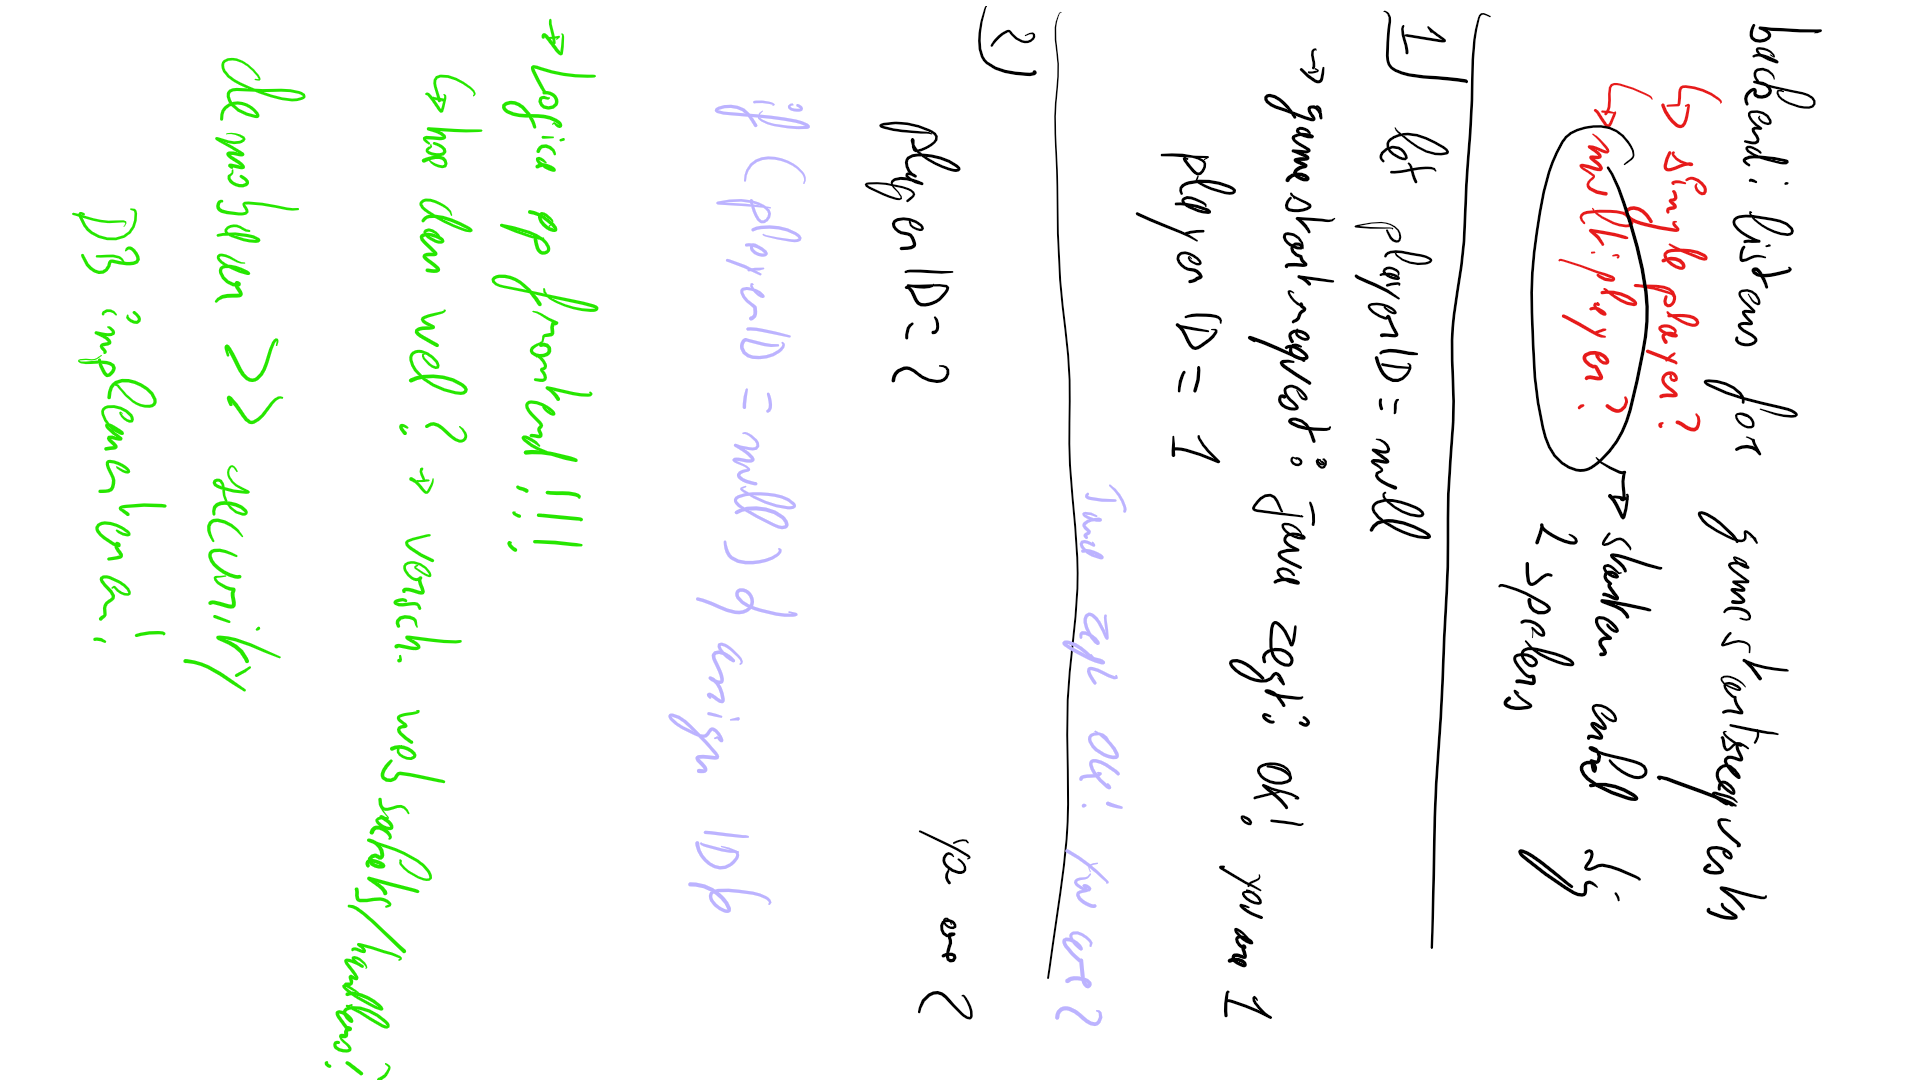 backend: listens for game start requests
↳ single player?
↳ multiplayer? → starten enkel bij
2 spelers
1) let playerID = null
→ game start request: Java zegt: OK! you are 1
player ID = 1
Java zegt OK! you are 2
2)
you are 2
player ID = 2
if (playerID = null) { assign ID }
→ logica op frontend!!!
↳ hoe dan wel? → versch. websockets/handlers?
demobaar >> security
DB implementeren!